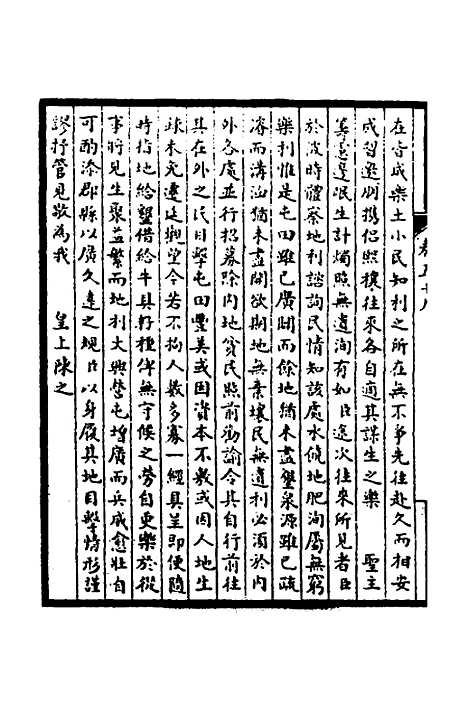 在皆成樂土小民知利之所在無不爭先往赴久而相安
成習邀朋攜侶熙攘往來各自適其謀生之樂　聖主
籌念邊氓生計燭照無遺洵有如臣途次往來所見者臣
於彼時體察地利諮詢民情知該處水饒地肥洵屬無窮
樂利惟是屯田雖已廣開而餘地猶未盡墾泉源雖已疏
濬而溝洫猶未盡開欲期地無棄壤民無遺利必須於內
外各處並行招募除內地貧民照前勸諭令其自行前往
其在外之民目擊屯田豐美或因資本不敷或因人地生
疎未免遷延觀望今若不拘人數多寡一經具呈即便隨
時指地給墾借給牛具籽種俾無守候之勞自更樂於從
事將見生聚益繁而地利大興營屯增廣而兵威愈壯自
可酌添郡縣以廣久遠之規臣以身履其地目擊情形謹
謬抒管見敬為我　皇上陳之
卷五十八